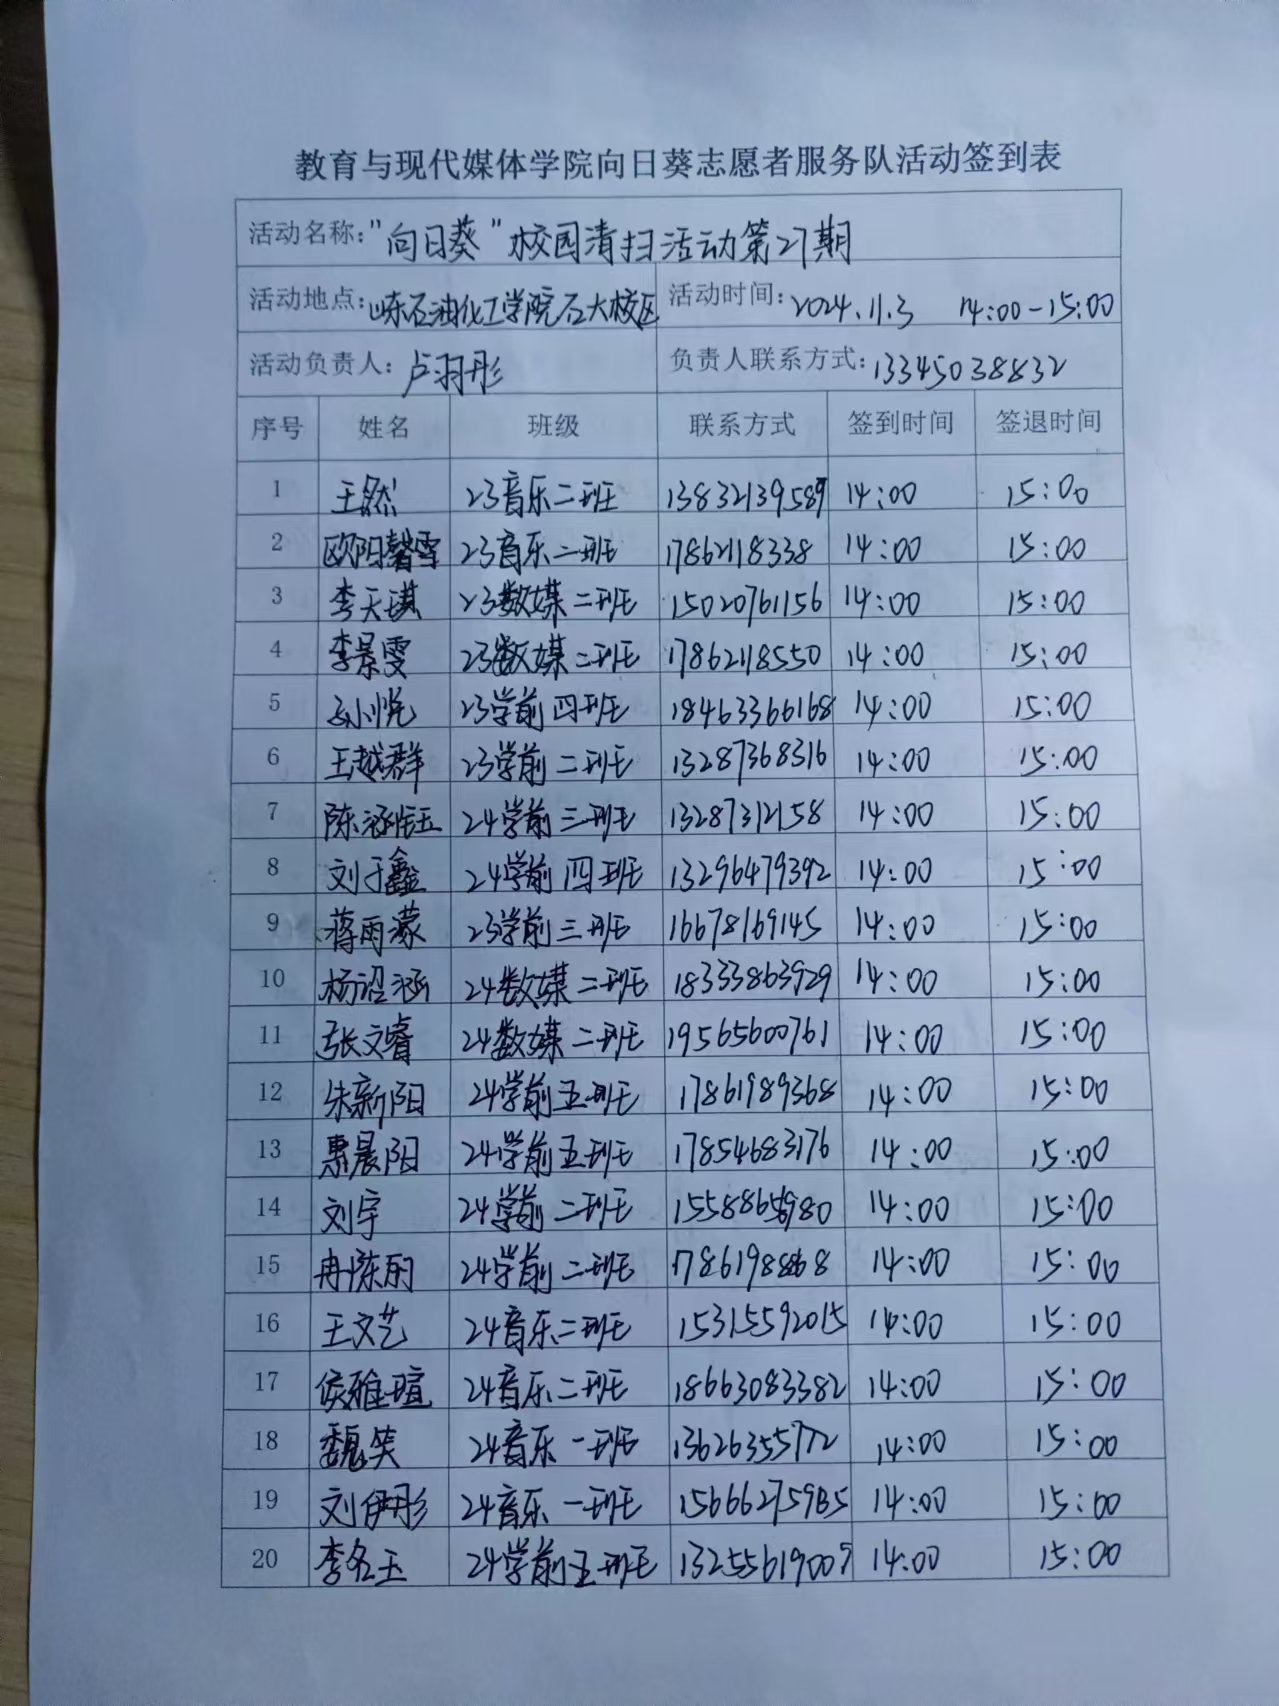 教育与现代媒体学院向日葵志愿者服务队活动签到表
活动名称:"向日葵"校园清扫活动第27期
活动地点:山东石油化工学院石大校区 活动时间:2024.11.3 14:00-15:00
活动负责人:卢羽彤 负责人联系方式:13345038832
序号 姓名 班级 联系方式 签到时间 签退时间
1 王然 23音乐二班 13832139589 14:00 15:00
2 欧阳馨雪 23音乐二班 17862118338 14:00 15:00
3 李天琪 23数媒二班 15020761156 14:00 15:00
4 李景雯 23数媒二班 17862118550 14:00 15:00
5 孙悦 23学前四班 18463366168 14:00 15:00
6 王越群 23学前二班 13287368316 14:00 15:00
7 陈涵钰 24学前三班 13287312158 14:00 15:00
8 刘于鑫 24学前四班 13296479392 14:00 15:00
9 蒋雨濛 23学前三班 16678169145 14:00 15:00
10 杨诏涵 24数媒二班 18333863929 14:00 15:00
11 张文睿 24数媒二班 19565600761 14:00 15:00
12 朱新阳 24学前五班 17861989368 14:00 15:00
13 票晨阳 24学前五班 17854683176 14:00 15:00
14 刘宇 24学前二班 14:00 15:00
15 24学前二班 14:00 15:00
16 王文艺 24音乐二班 15315592015 14:00 15:00
17 侯雅瑄 24音乐二班 18663083382 14:00 15:00
18 魏笑 24音乐一班 13626355772 14:00 15:00
19 刘伊彤 24音乐一班 14:00 15:00
20 李名玉 24学前五班 13255619009 14:00 15:00